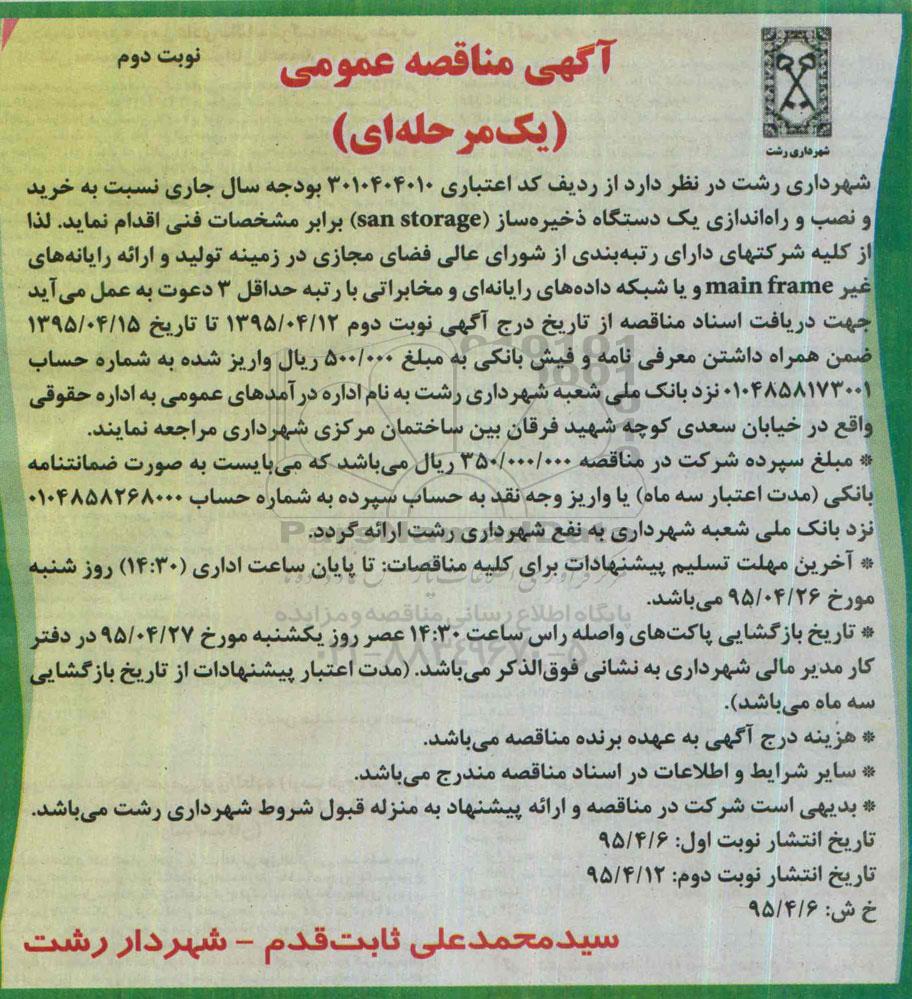 آگهی مناقصه عمومی
(یک‌مرحله‌ای)
نوبت دوم
شهرداری رشت
شهرداری رشت در نظر دارد از ردیف کد اعتباری ۳۰۱۰۴۰۴۰۱۰ بودجه سال جاری نسبت به خرید
و نصب و راه‌اندازی یک دستگاه ذخیره‌ساز (san storage) برابر مشخصات فنی اقدام نماید. لذا
از کلیه شرکتهای دارای رتبه‌بندی از شورای عالی فضای مجازی در زمینه تولید و ارائه رایانه‌های
غیر main frame و یا شبکه داده‌های رایانه‌ای و مخابراتی با رتبه حداقل ۳ دعوت به عمل می‌آید
جهت دریافت اسناد مناقصه از تاریخ درج آگهی نوبت دوم ۱۳۹۵/۰۴/۱۲ تا تاریخ ۱۳۹۵/۰۴/۱۵
ضمن همراه داشتن معرفی نامه و فیش بانکی به مبلغ ۵۰۰/۰۰۰ ریال واریز شده به شماره حساب
۰۱۰۴۸۵۸۱۷۳۰۰۱ نزد بانک ملی شعبه شهرداری رشت به نام اداره درآمدهای عمومی به اداره حقوقی
واقع در خیابان سعدی کوچه شهید فرقان بین ساختمان مرکزی شهرداری مراجعه نمایند.
* مبلغ سپرده شرکت در مناقصه ۳۵۰/۰۰۰/۰۰۰ ریال می‌باشد که می‌بایست به صورت ضمانتنامه
بانکی (مدت اعتبار سه ماه) یا واریز وجه نقد به حساب سپرده به شماره حساب ۰۱۰۴۸۵۸۲۶۸۰۰۰
نزد بانک ملی شعبه شهرداری به نفع شهرداری رشت ارائه گردد.
* آخرین مهلت تسلیم پیشنهادات برای کلیه مناقصات: تا پایان ساعت اداری (۱۴:۳۰) روز شنبه
مورخ ۹۵/۰۴/۲۶ می‌باشد.
* تاریخ بازگشایی پاکت‌های واصله راس ساعت ۱۴:۳۰ عصر روز یکشنبه مورخ ۹۵/۰۴/۲۷ در دفتر
کار مدیر مالی شهرداری به نشانی فوق‌الذکر می‌باشد. (مدت اعتبار پیشنهادات از تاریخ بازگشایی
سه ماه می‌باشد).
* هزینه درج آگهی به عهده برنده مناقصه می‌باشد.
* سایر شرایط و اطلاعات در اسناد مناقصه مندرج می‌باشد.
* بدیهی است شرکت در مناقصه و ارائه پیشنهاد به منزله قبول شروط شهرداری رشت می‌باشد.
تاریخ انتشار نوبت اول: ۹۵/۴/۶
تاریخ انتشار نوبت دوم: ۹۵/۴/۱۲
خ ش: ۹۵/۴/۶
سیدمحمدعلی ثابت‌قدم – شهردار رشت
پایگاه اطلاع رسانی مناقصه و مزایده